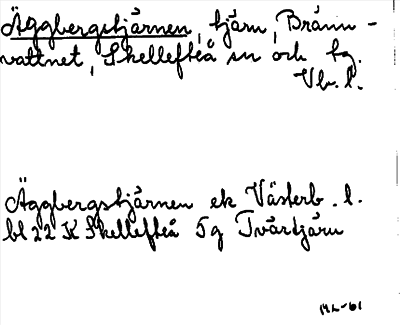 Äggbergstjärnen, tjärn, Bränn-
vattnet, Skellefteå sn och tg.
Vb. l.
Äggbergstjärnen ek Västerb. l.
bl 22 K Skellefteå 5g Tvärtjärn
ML-61